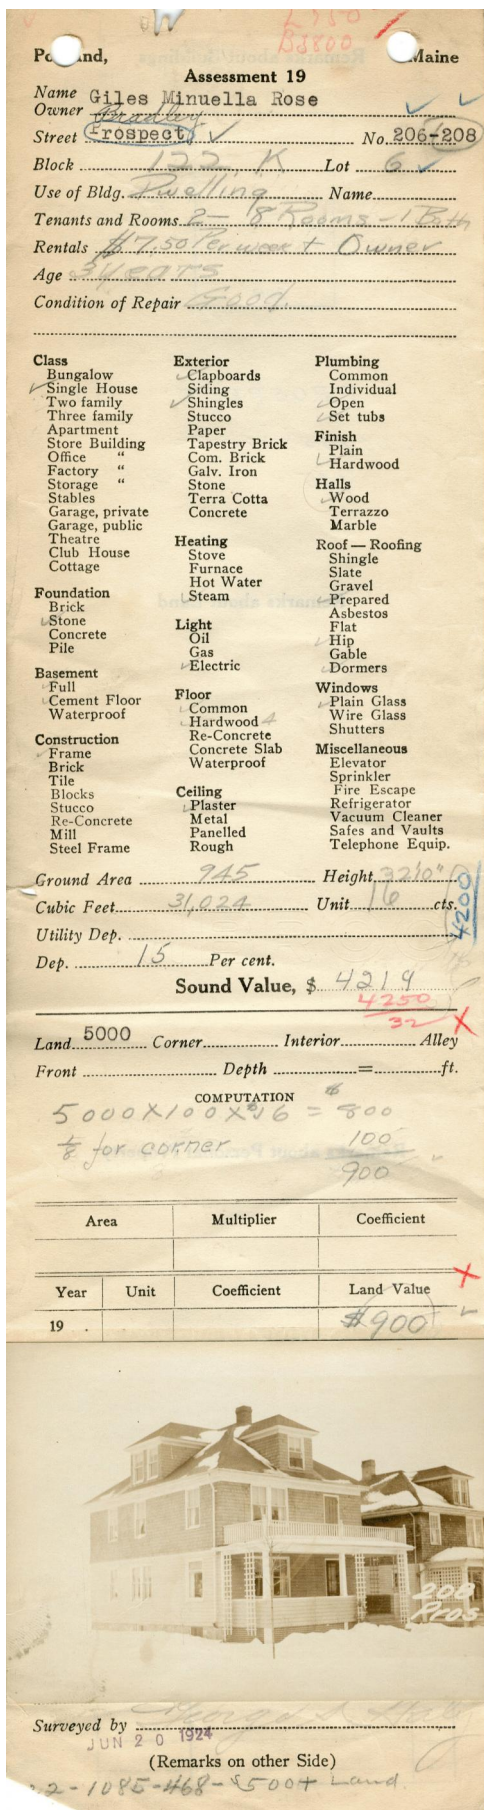 L 950
B 3800
Portland, Maine
Assessment 19
Name Giles Minuella Rose
Owner
Bradley
Street Prospect No. 206-208
Block 122 K Lot 6
Use of Bldg. Dwelling Name
Tenants and Rooms 2 - 8 Rooms - 1 Bath
Rentals $7.50 Per week + Owner
Age 3 years
Condition of Repair Good.
Class
Bungalow
Single House
Two family
Three family
Apartment
Store Building
Office "
Factory "
Storage "
Stables
Garage, private
Garage, public
Theatre
Club House
Cottage
Foundation
Brick
Stone
Concrete
Pile
Basement
Full
Cement Floor
Waterproof
Construction
Frame
Brick
Tile
Blocks
Stucco
Re-Concrete
Mill
Steel Frame
Exterior
Clapboards
Siding
Shingles
Stucco
Paper
Tapestry Brick
Com. Brick
Galv. Iron
Stone
Terra Cotta
Concrete
Heating
Stove
Furnace
Hot Water
Steam
Light
Oil
Gas
Electric
Floor
Common
Hardwood 4
Re-Concrete
Concrete Slab
Waterproof
Ceiling
Plaster
Metal
Panelled
Rough
Plumbing
Common
Individual
Open
Set tubs
Finish
Plain
Hardwood
Halls
Wood
Terrazzo
Marble
Roof — Roofing
Shingle
Slate
Gravel
Prepared
Asbestos
Flat
Hip
Gable
Dormers
Windows
Plain Glass
Wire Glass
Shutters
Miscellaneous
Elevator
Sprinkler
Fire Escape
Refrigerator
Vacuum Cleaner
Safes and Vaults
Telephone Equip.
Ground Area 945 Height 32'10"
Cubic Feet 31,024 Unit 16 cts.
4200
Utility Dep.
Dep. 15 Per cent.
Sound Value, $ 4219
4250
32
Land 5000 Corner Interior Alley
Front Depth = ft.
COMPUTATION
5000 X 100 X $16 = $800
1/8 for corner 100
900
Area Multiplier Coefficient
Year Unit Coefficient Land Value
19 . $900
208
Pros
Surveyed by
JUN 20 1924
(Remarks on other Side)
2-1085-468-$500+ Land